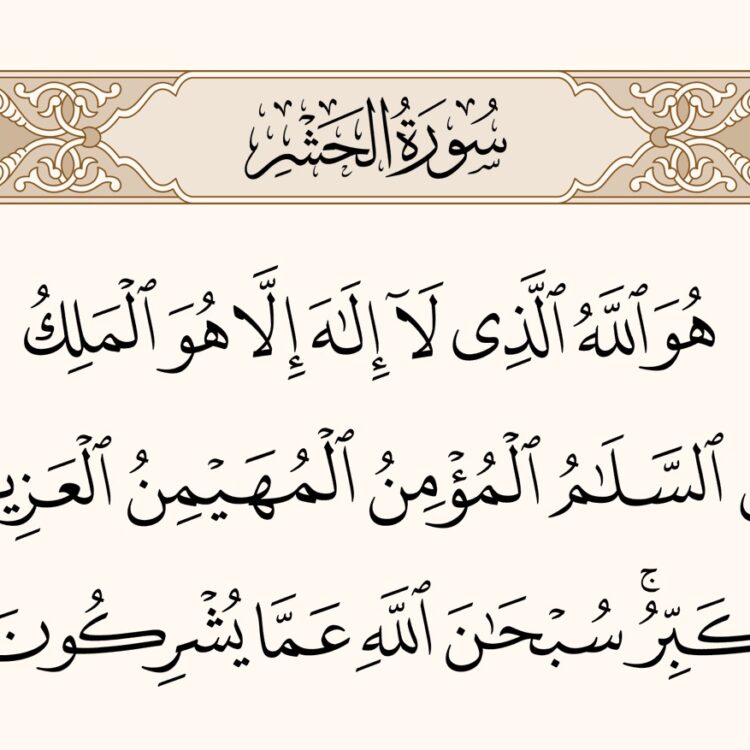 سُورَةُ الحَشْرِ
هُوَ ٱللَّهُ ٱلَّذِى لَآ إِلَـٰهَ إِلَّا هُوَ ٱلْمَلِكُ
ٱلسَّلَـٰمُ ٱلْمُؤْمِنُ ٱلْمُهَيْمِنُ
سُبْحَـٰنَ ٱللَّهِ عَمَّا يُشْرِكُونَ